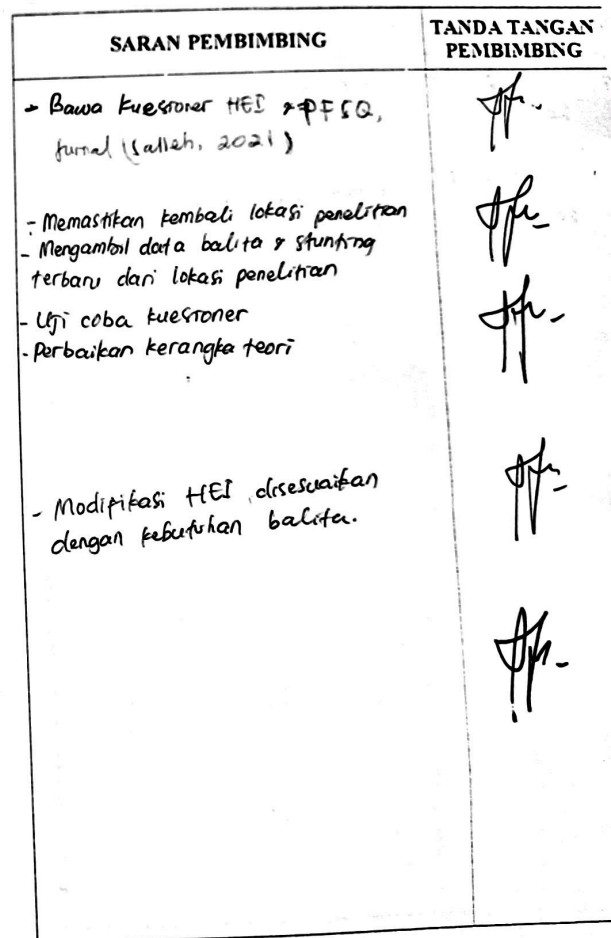 SARAN PEMBIMBING
TANDA TANGAN
PEMBIMBING
- Bawa kuesioner HEI & PFSQ,
jurnal (Salleh, 2021)
- Memastikan kembali lokasi penelitian
- Mengambil data balita & stunting
terbaru dari lokasi penelitian
- Uji coba kuesioner
- Perbaikan kerangka teori
- Modifikasi HEI disesuaikan
dengan kebutuhan balita.